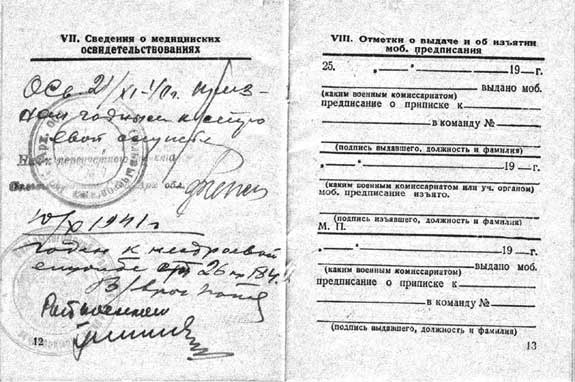 VII. Сведения о медицинских
освидетельствованиях
Осв. 2/XI-40г. приз-
нан годным к
службе
10/X 1941г
годен к нестроевой
службе ст 26 пр 184
12
VIII. Отметки о выдаче и об изъятии
моб. предписания
25. „ “ 19 г.
выдано моб.
(каким военным комиссариатом)
предписание о приписке к
в команду №
(подпись выдавшего, должность и фамилия)
„ “ 19 г.
(каким военным комиссариатом или уч. органом)
моб. предписание изъято.
(подпись изъявшего, должность и фамилия)
М. П.
„ “ 19 г.
выдано моб.
(каким военным комиссариатом)
предписание о приписке к
в команду №
(подпись выдавшего, должность и фамилия)
13